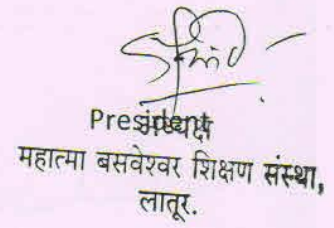 President
अध्यक्ष
महात्मा बसवेश्वर शिक्षण संस्था,
लातूर.